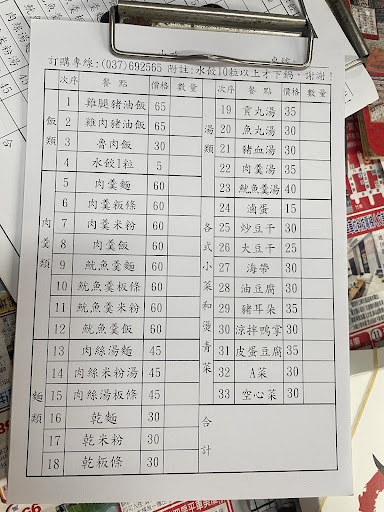 訂購專線:(037)692565 附註:水餃10粒以上才下鍋,謝謝!
次序 餐點 價格 數量 次序 餐點 價格 數量
飯類
1 雞腿豬油飯 65
2 雞肉豬油飯 65
3 魯肉飯 30
4 水餃1粒 5
肉羹類
5 肉羹麵 60
6 肉羹粄條 60
7 肉羹米粉 60
8 肉羹飯 60
9 魷魚羹麵 60
10 魷魚羹粄條 60
11 魷魚羹米粉 60
12 魷魚羹飯 60
麵類
13 肉絲湯麵 45
14 肉絲米粉湯 45
15 肉絲湯粄條 45
16 乾麵 30
17 乾米粉 30
18 乾粄條 30
湯類
19 貢丸湯 35
20 魚丸湯 30
21 豬血湯 30
22 肉羹湯 35
23 魷魚羹湯 40
各式小菜和燙青菜
24 滷蛋 15
25 炒豆干 30
26 大豆干 25
27 海帶 30
28 油豆腐 30
29 豬耳朵 35
30 涼拌鴨掌 30
31 皮蛋豆腐 35
32 A菜 30
33 空心菜 30
合計